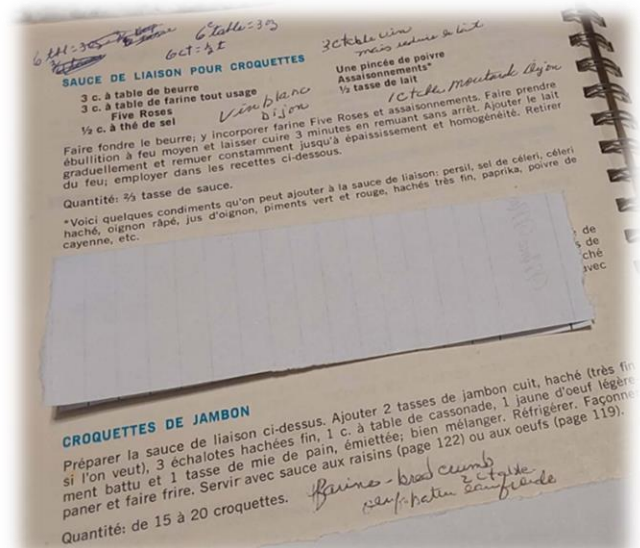 6 c table = 3 oz
6 ct = ⅓ t
SAUCE DE LIAISON POUR CROQUETTES
3 c. à table de beurre
3 c. à table de farine tout usage
Five Roses
½ c. à thé de sel
Vin blanc
Dijon
3 c table vin
mais réduire le lait
Une pincée de poivre
Assaisonnements*
½ tasse de lait
1 C table moutarde Dijon
Faire fondre le beurre; y incorporer farine Five Roses et assaisonnements. Faire prendre
ébullition à feu moyen et laisser cuire 3 minutes en remuant sans arrêt. Ajouter le lait
graduellement et remuer constamment jusqu'à épaississement et homogénéité. Retirer
du feu; employer dans les recettes ci-dessous.
Quantité: ⅔ tasse de sauce.
*Voici quelques condiments qu'on peut ajouter à la sauce de liaison: persil, sel de céleri, céleri
haché, oignon râpé, jus d'oignon, piments vert et rouge, hachés très fin, paprika, poivre de
cayenne, etc.
de
de
ché
avec
CROQUETTES DE JAMBON
Préparer la sauce de liaison ci-dessus. Ajouter 2 tasses de jambon cuit, haché (très fin
si l'on veut), 3 échalotes hachées fin, 1 c. à table de cassonade, 1 jaune d'oeuf légère
ment battu et 1 tasse de mie de pain, émiettée; bien mélanger. Réfrigérer. Façonne
paner et faire frire. Servir avec sauce aux raisins (page 122) ou aux oeufs (page 119).
Quantité: de 15 à 20 croquettes.
Farine - bread crumb
oeuf battu 2 c table
eau froide